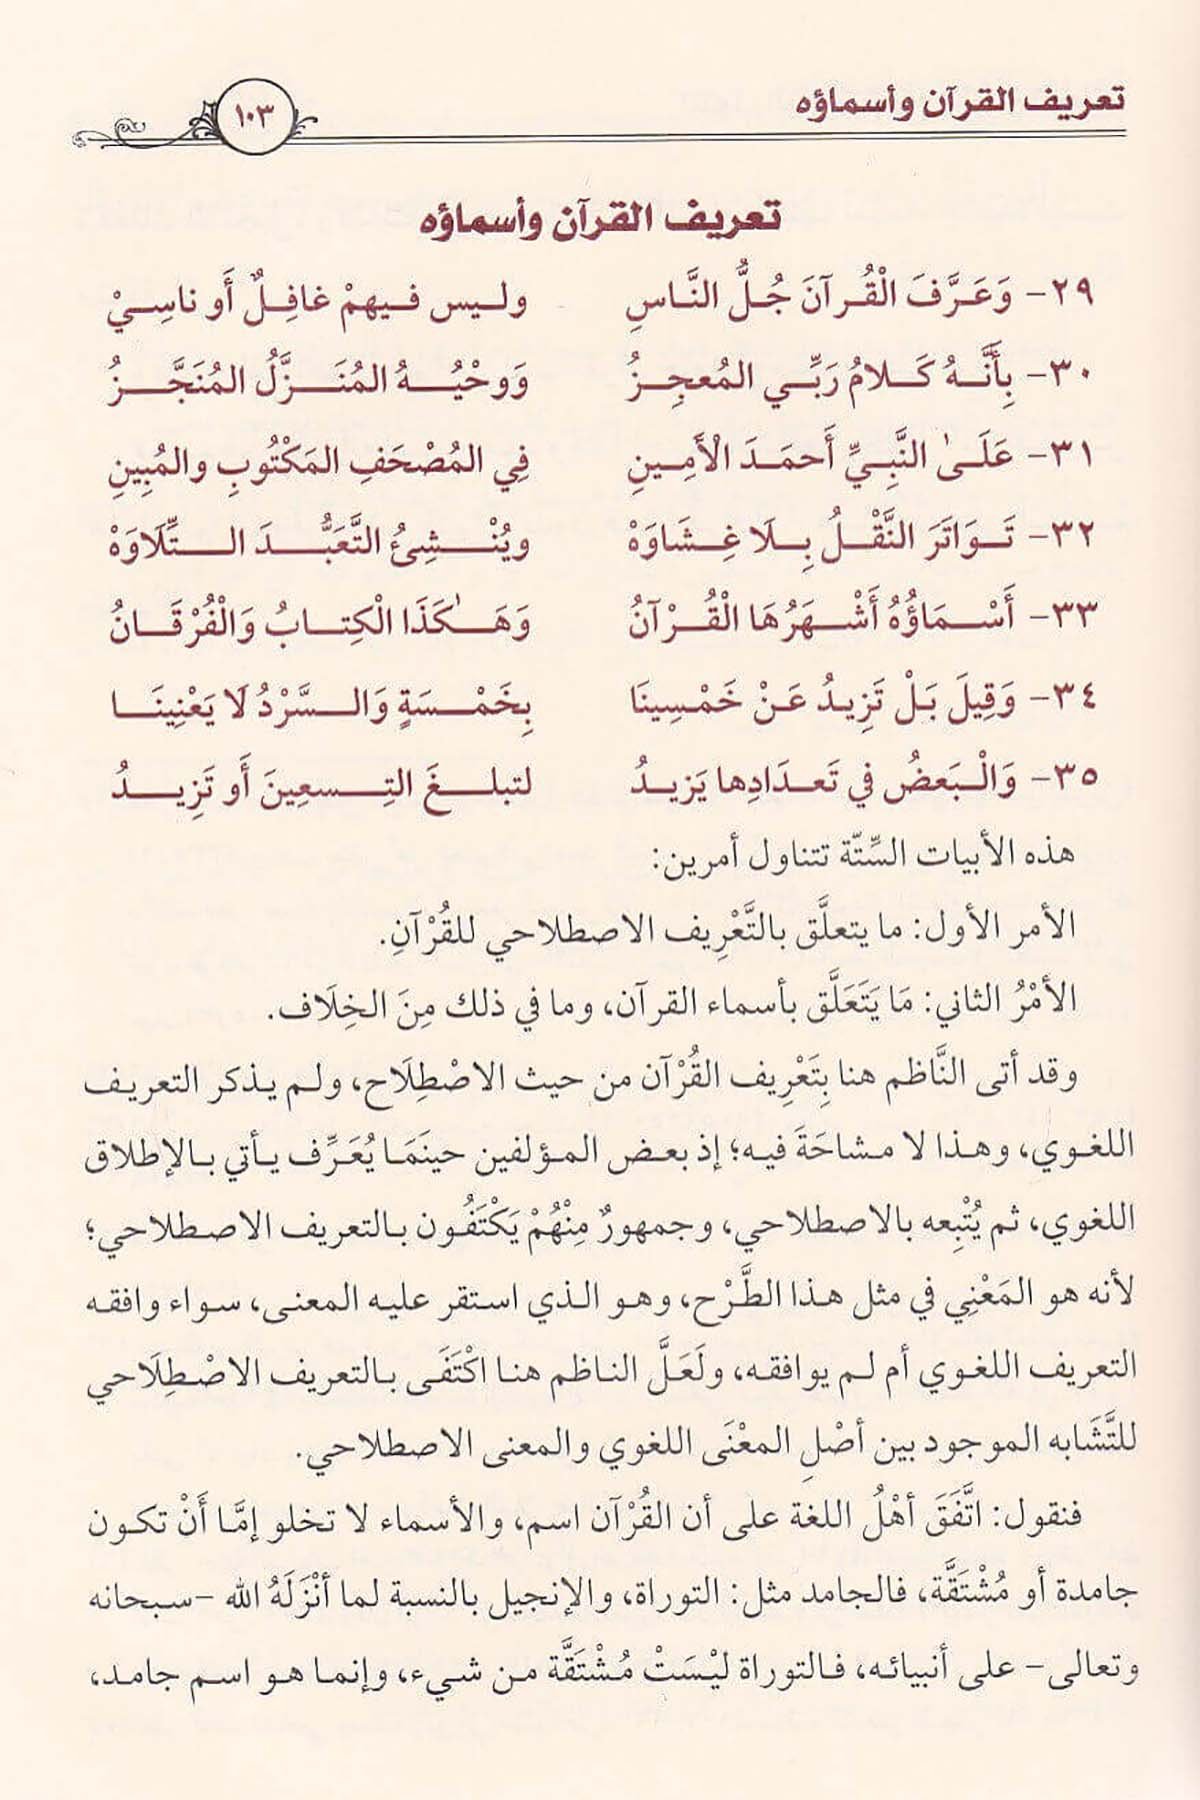 تعريف القرآن وأسماؤه
١٠٣
تعريف القرآن وأسماؤه
٢٩- وَعَرَّفَ الْقُرآنَ جُلُّ النَّاسِ وليس فيهمْ غافِلٌ أَو ناسِيْ
٣٠- بِأَنَّهُ كَلامُ رَبِّي المُعجِزُ وَوحْيُهُ المُنَزَّلُ المُنَجَّزُ
٣١- عَلَىٰ النَّبِيِّ أَحمَدَ الْأَمِينِ فِي المُصْحَفِ المَكْتُوبِ والمُبِينِ
٣٢- تَوَاتَرَ النَّقْلُ بِلَا غِشَاوَهْ ويُنْشِئُ التَّعَبُّدَ التِّلَاوَهْ
٣٣- أَسْمَاؤُهُ أَشْهَرُهَا الْقُرْآنُ وَهَٰكَذَا الْكِتابُ وَالْفُرْقَانُ
٣٤- وَقِيلَ بَلْ تَزِيدُ عَنْ خَمْسِينَا بِخَمْسَةٍ وَالسَّرْدُ لَا يَعْنِينَا
٣٥- وَالْبَعضُ في تَعدَادِها يَزيدُ لتبلغَ التِسعِينَ أَو تَزِيدُ
هذه الأبيات السِّتّة تتناول أمرين:
الأمر الأول: ما يتعلَّق بالتَّعْرِيف الاصطلاحي للقُرْآنِ.
الأمْرُ الثاني: مَا يَتَعَلَّق بأسماء القرآن، وما في ذلك مِنَ الخِلَاف.
وقد أتى النَّاظم هنا بِتَعْرِيف القُرْآن من حيث الاصْطِلَاح، ولم يذكر التعريف
اللغوي، وهذا لا مشاحَةَ فيه؛ إذ بعض المؤلفين حينَمَا يُعَرِّف يأتي بالإطلاق
اللغوي، ثم يُتْبِعه بالاصطلاحي، وجمهورٌ مِنْهُمْ يَكْتَفُون بالتعريف الاصطلاحي؛
لأنه هو المَعْنِي في مثل هذا الطَّرْح، وهو الذي استقر عليه المعنى، سواء وافقه
التعريف اللغوي أم لم يوافقه، ولَعَلَّ الناظم هنا اكْتَفَى بالتعريف الاصْطِلَاحي
للتَّشَابه الموجود بين أصْلِ المعْنَى اللغوي والمعنى الاصطلاحي.
فنقول: اتَّفَقَ أهْلُ اللغة على أن القُرْآن اسم، والأسماء لا تخلو إمَّا أَنْ تكون
جامدة أو مُشْتَقَّة، فالجامد مثل: التوراة، والإنجيل بالنسبة لما أنْزَلَهُ الله -سبحانه
وتعالى- على أنبيائه، فالتوراة ليْسَتْ مُشْتَقَّة من شيء، وإنما هو اسم جامد،